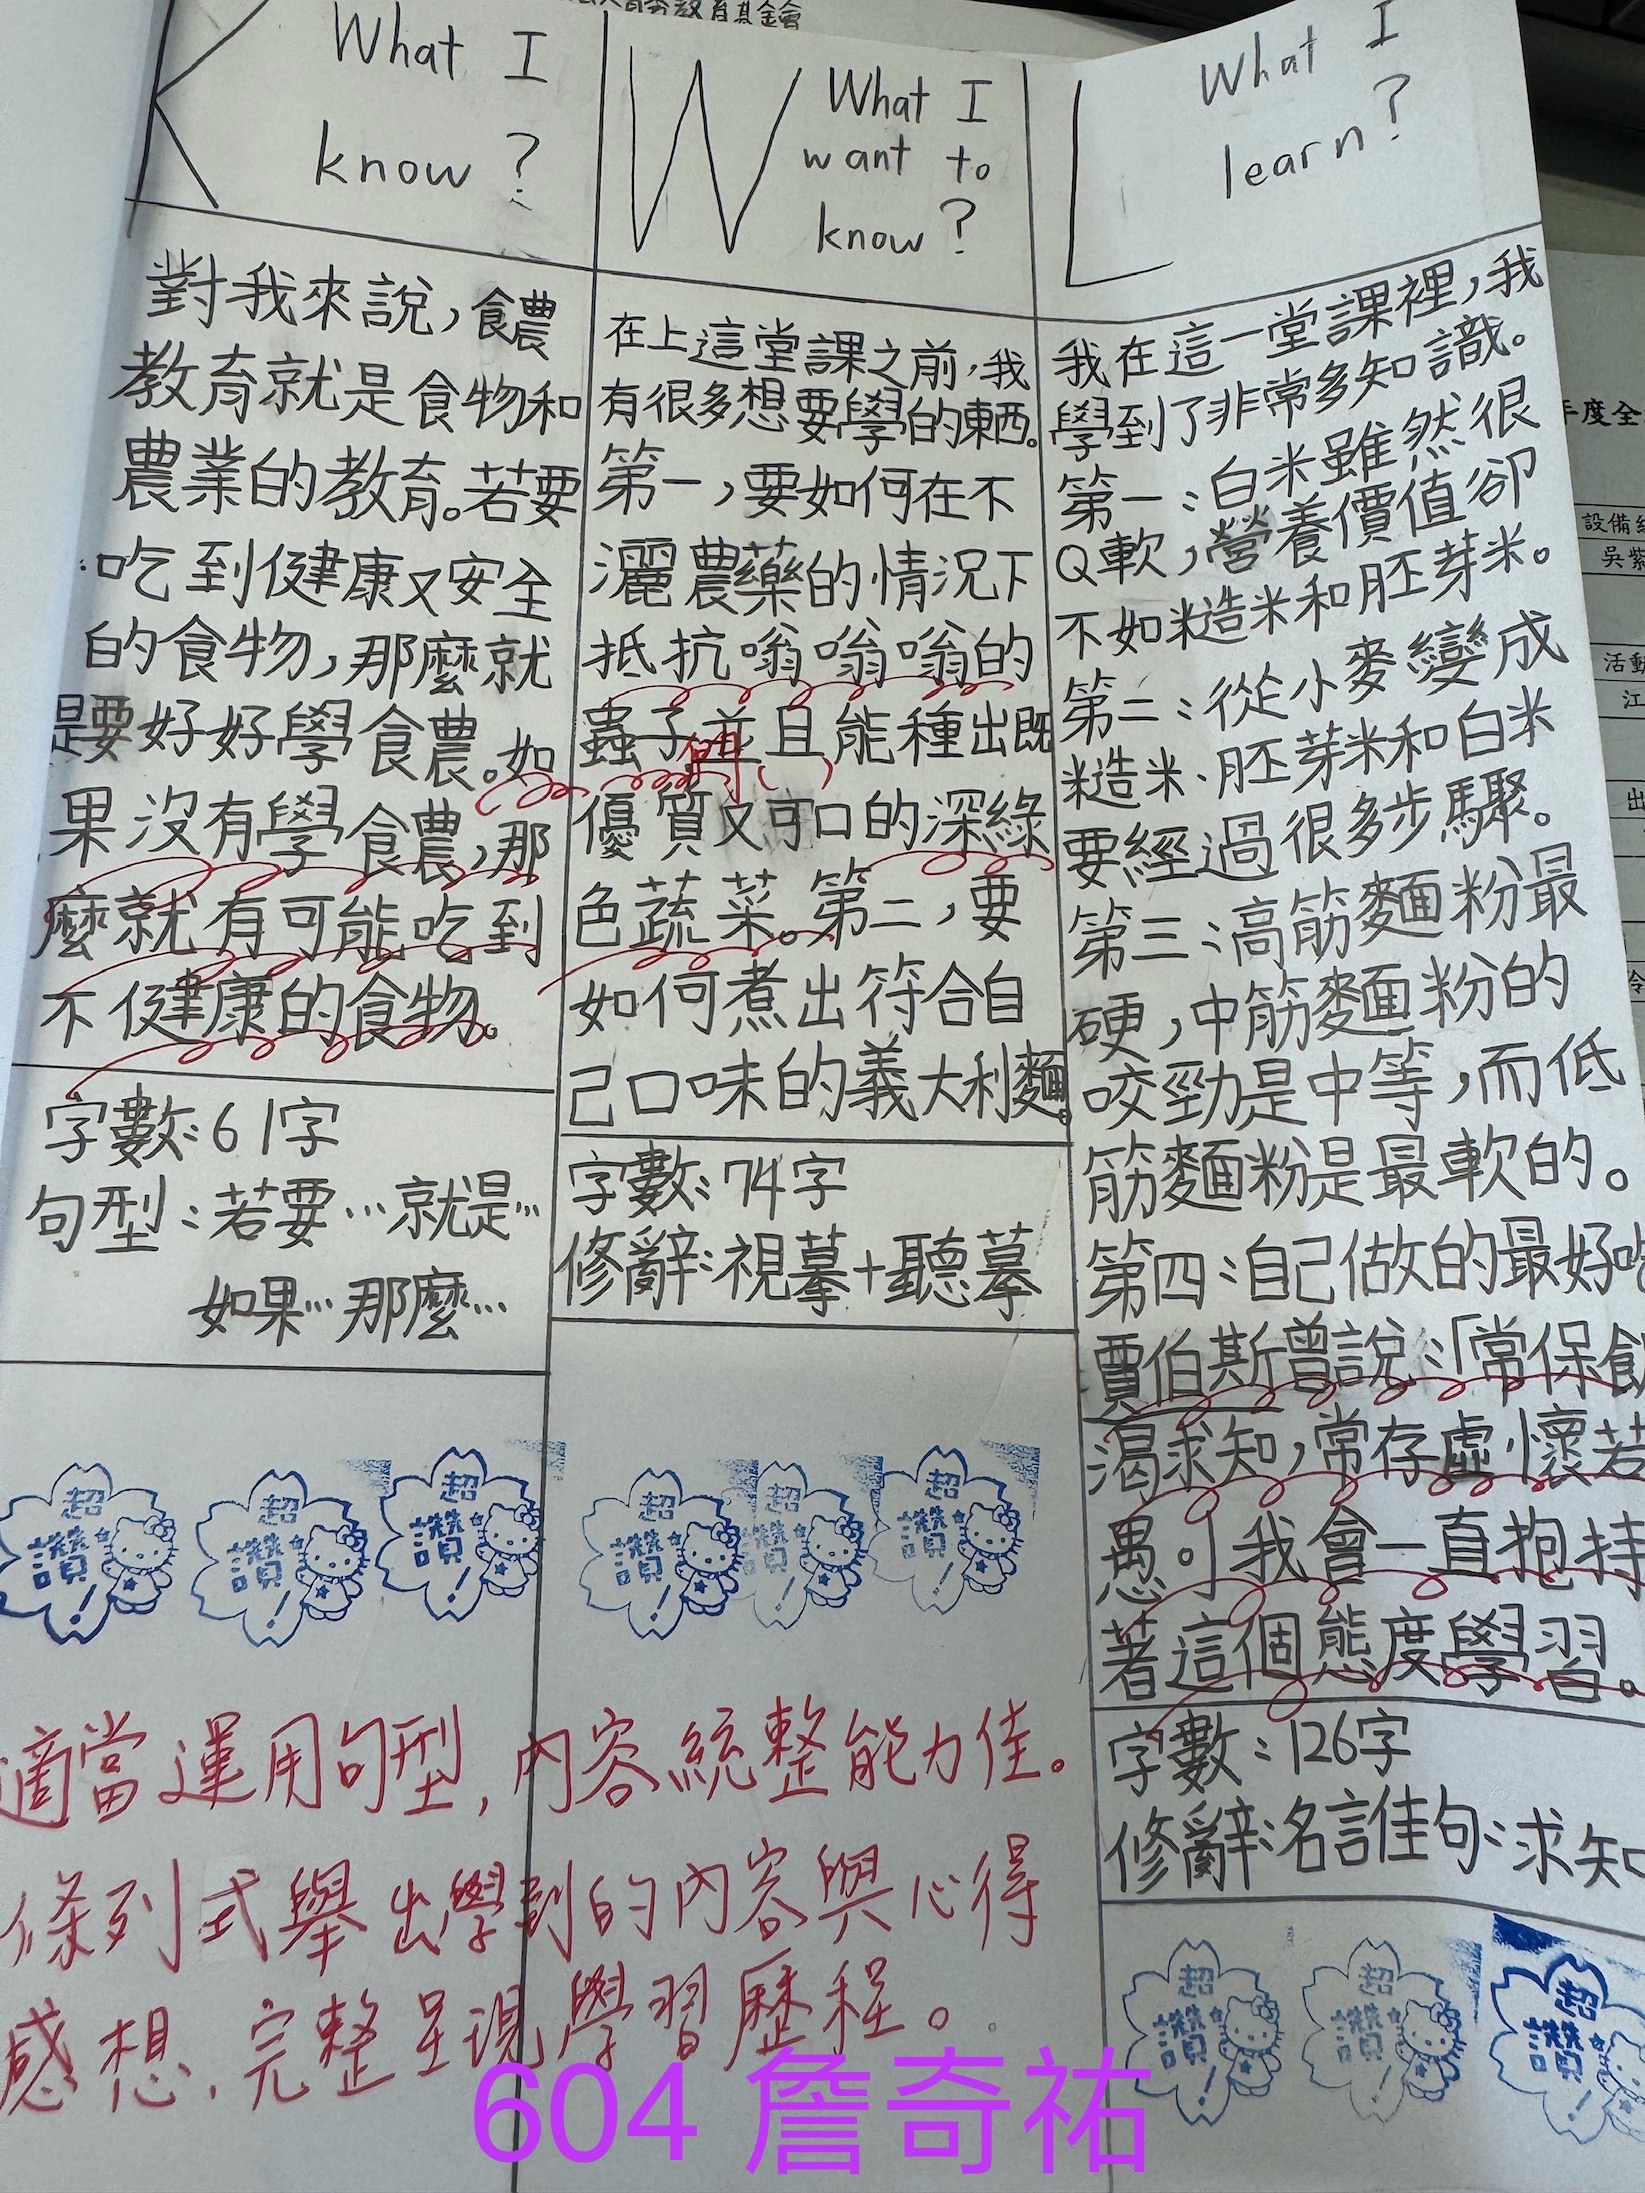 K What I
know?
對我來說，食農
教育就是食物和
農業的教育。若要
吃到健康又安全
的食物，那麼就
是要好好學食農。如
果沒有學食農，那
麼就有可能吃到
不健康的食物。
字數：61字
句型：若要…就是…
如果…那麼…
超讚！
超讚！
超讚！
W What I
want to
know?
在上這堂課之前，我
有很多想要學的東西。
第一，要如何在不
灑農藥的情況下
抵抗嗡嗡嗡的
蟲子並且能種出既
們
優質又可口的深綠
色蔬菜。第二，要
如何煮出符合自
己口味的義大利麵。
字數：74字
修辭：視摹+聽摹
超讚！
超讚！
超讚！
L What I
learn?
我在這一堂課裡，我
學到了非常多知識。
第一：白米雖然很
Q軟，營養價值卻
不如糙米和胚芽米。
第二：從小麥變成
糙米、胚芽米和白米
要經過很多步驟。
第三：高筋麵粉最
硬，中筋麵粉的
咬勁是中等，而低
筋麵粉是最軟的。
第四：自己做的最好吃
賈伯斯曾說：「常保飢
渴求知，常存虛懷若
愚。」我會一直抱持
著這個態度學習。
字數：126字
修辭：名言佳句：求知
超讚！
超讚！
超讚！
適當運用句型，內容統整能力佳。
條列式舉出學到的內容與心得
感想，完整呈現學習歷程。
604 詹奇祐
年度全
設備組
吳紫
活動
江
出
令